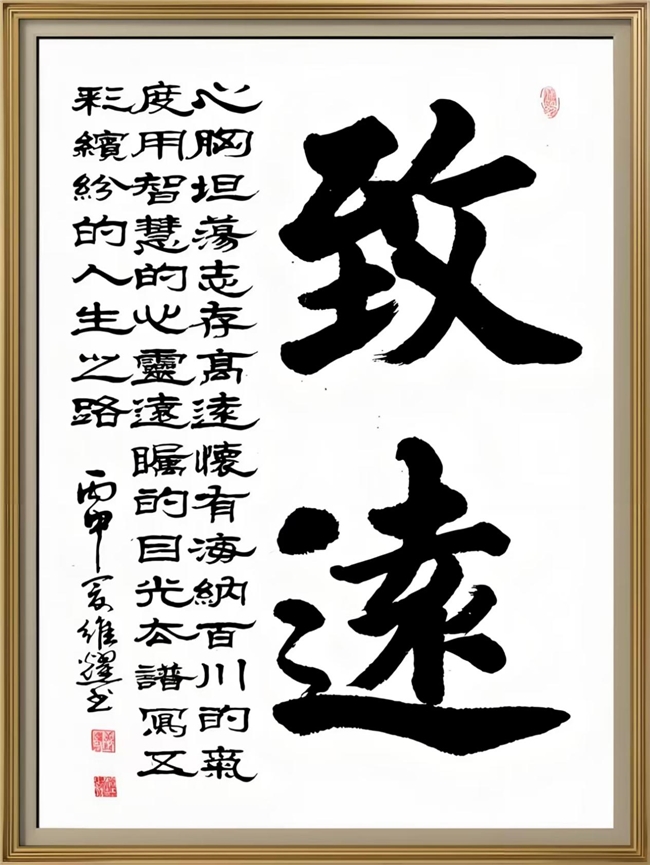 致遠
心胸坦蕩志存高遠懷有海納百川的氣
度用智慧的心靈遠矚的目光去譜寫五
彩繽紛的人生之路
丙申夏維耀书